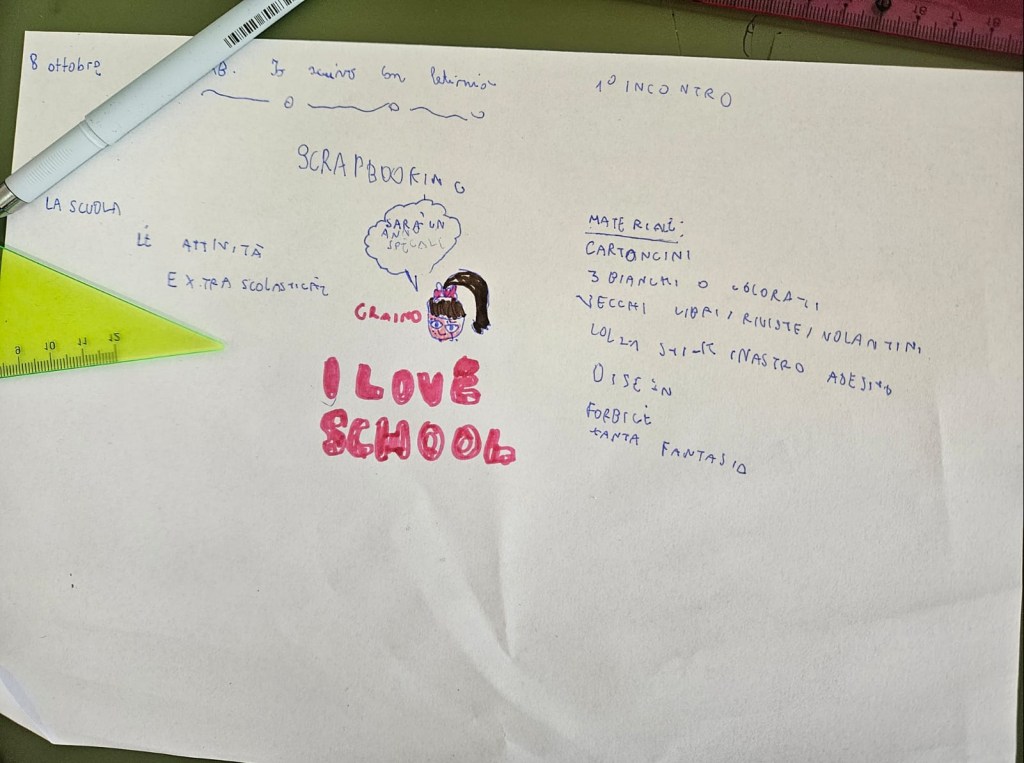 8 ottobre
Io scrivo con
1° INCONTRO
SCRAPBOOKING
LA SCUOLA
LE ATTIVITÀ
EXTRA SCOLASTICHE
SARÀ UN
ANNO
SPECIALE
GRAINO
I LOVE
SCHOOL
MATERIALE:
CARTONCINI
3 BIANCHI O COLORATI
VECCHI LIBRI, RIVISTE, VOLANTINI
COLLA STICK NASTRO ADESIVO
FORBICE
TANTA FANTASIA
9 10 11 12
16 17 18